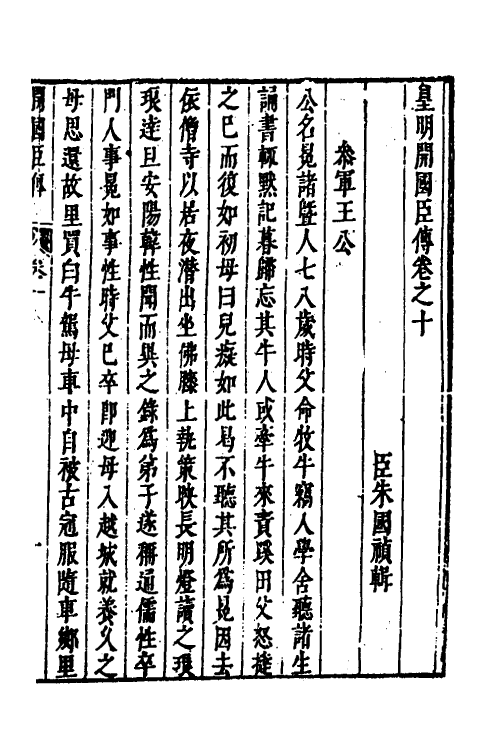 皇明開國臣傳卷之十
臣朱國禎輯
叅軍王公
公名冕諸暨人七八歲時父命牧牛竊入學舍聽諸生
誦書輒默記暮歸忘其牛人或牽牛來責蹊田父怒撻
之已而復如初母曰兒癡如此曷不聽其所為冕因去
依僧寺以居夜潛出坐佛膝上執策映長明燈讀之琅
琅達旦安陽韓性聞而異之錄為弟子遂稱通儒性卒
門人事冕如事性時父已卒即迎母入越城就養久之
母思還故里買白牛駕母車中自被古冠服隨車鄉里
開國臣傳 卷十 一